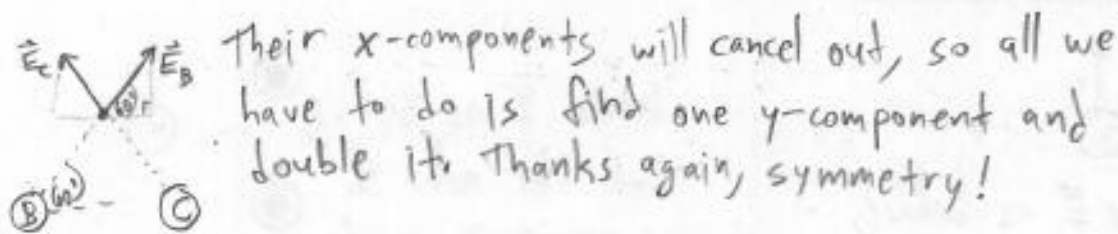 Their x-components will cancel out, so all we
have to do is find one y-component and
double it. Thanks again, symmetry!
E⃗c
E⃗B
60°
B
60°
C